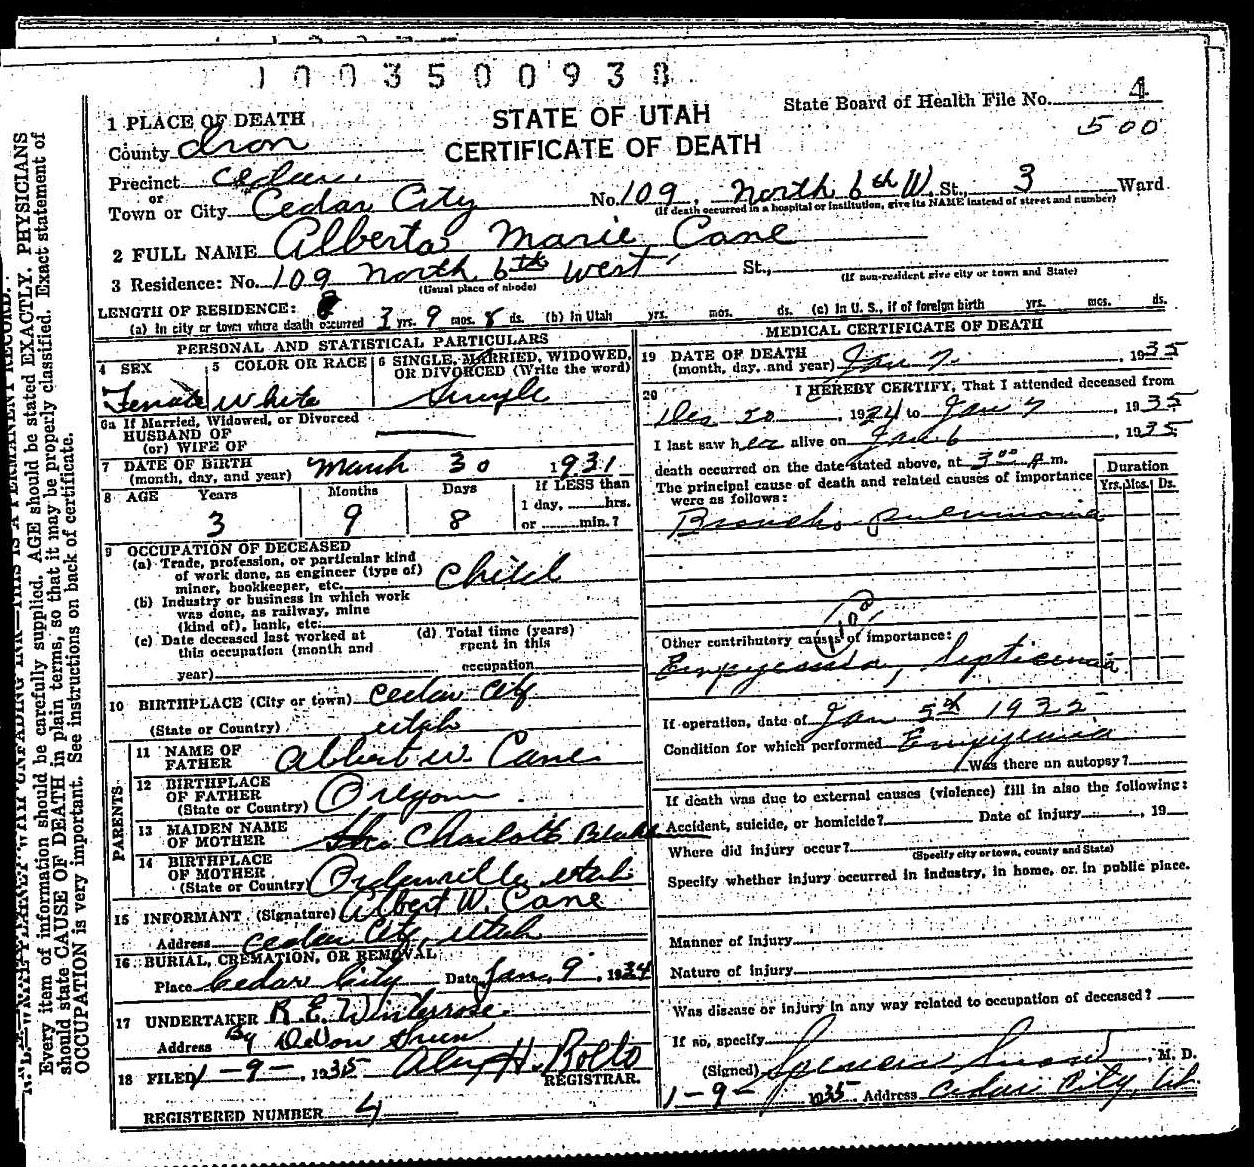 1003500938
STATE OF UTAH
CERTIFICATE OF DEATH
State Board of Health File No. 4
500
1 PLACE OF DEATH
County Iron
Precinct Cedar
or
Town or City Cedar City No. 109 North 6th W. St., 3 Ward
(If death occurred in a hospital or institution, give its NAME instead of street and number)
2 FULL NAME Alberta Marie Cane
3 Residence: No. 109 North 6th West St.,
(Usual place of abode) (If non-resident give city or town and State)
LENGTH OF RESIDENCE:
(a) In city or town where death occurred 3 yrs. 9 mos. 8 ds. (b) In Utah yrs. mos. ds. (c) In U. S., if of foreign birth yrs. mos. ds.
PERSONAL AND STATISTICAL PARTICULARS
4 SEX 5 COLOR OR RACE 6 SINGLE, MARRIED, WIDOWED, OR DIVORCED (Write the word)
Female White Single
6a If Married, Widowed, or Divorced
HUSBAND OF
(or) WIFE OF
7 DATE OF BIRTH
(month, day, and year) March 30 1931
8 AGE Years Months Days If LESS than
1 day, hrs.
3 9 8 or min.?
9 OCCUPATION OF DECEASED
(a) Trade, profession, or particular kind
of work done, as engineer (type of)
miner, bookkeeper, etc. Child
(b) Industry or business in which work
was done, as railway, mine
(kind of), bank, etc.
(c) Date deceased last worked at
this occupation (month and
year)
(d) Total time (years)
spent in this
occupation
10 BIRTHPLACE (City or town) Cedar City
(State or Country) Utah
PARENTS
11 NAME OF
FATHER Albert W. Cane
12 BIRTHPLACE
OF FATHER
(State or Country) Oregon
13 MAIDEN NAME
OF MOTHER Charlott
14 BIRTHPLACE
OF MOTHER
(State or Country) Orderville Utah
15 INFORMANT (Signature) Albert W. Cane
Address Cedar City, Utah
16 BURIAL, CREMATION, OR REMOVAL
Place Cedar City Date Jan. 9, 1934
17 UNDERTAKER R. E. Winterrose
Address By DeVon
18 FILED 1-9-, 1935 Alex H. Rollo
REGISTRAR.
REGISTERED NUMBER 4
MEDICAL CERTIFICATE OF DEATH
19 DATE OF DEATH
(month, day, and year) Jan 7, 1935
20 I HEREBY CERTIFY, That I attended deceased from
Dec 20 1934 to Jan 7, 1935
I last saw her alive on Jan 6, 1935
death occurred on the date stated above, at 3:00 A m.
The principal cause of death and related causes of importance
were as follows:
Duration
Yrs. Mos. Ds.
Broncho pneumonia
Other contributory causes of importance:
Empyemia, Septicemia
If operation, date of Jan 5th 1935
Condition for which performed Empyemia
Was there an autopsy?
If death was due to external causes (violence) fill in also the following:
Accident, suicide, or homicide? Date of injury , 19
Where did injury occur?
(Specify city or town, county and State)
Specify whether injury occurred in industry, in home, or in public place.
Manner of Injury
Nature of injury
Was disease or injury in any way related to occupation of deceased?
If so, specify
(Signed) Spencer Snow, M. D.
1-9- 1935 Address Cedar City, Ut.
Every item of information should be carefully supplied. AGE should be stated EXACTLY. PHYSICIANS
should state CAUSE OF DEATH in plain terms, so that it may be properly classified. Exact statement of
OCCUPATION is very important. See instructions on back of certificate.